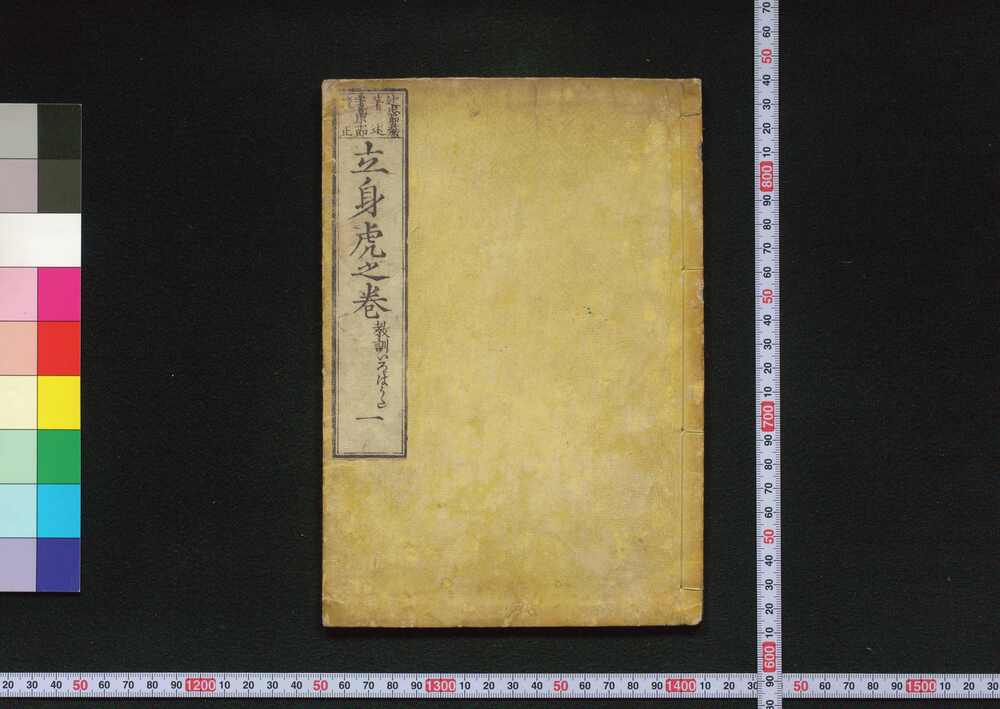 立身虎之巻
教訓いろはうた
一
20 30 40 50 60 70 80 90 1200 10 20 30 40 50 60 70 80 90 1300 10 20 30 40 50 60 70 80 90 1400 10 20 30 50 60 70 80 90 1500 10 20 30
70 60 50 40 30 20 10 800 90 80 70 60 50 40 30 20 10 700 90 80 70 60 50 40 30 20 10 600 90 80